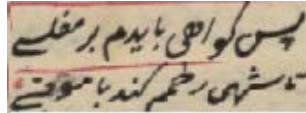 پس کواهی بایدم بر مفلسی
تا شهی رحمم کند با مونسی